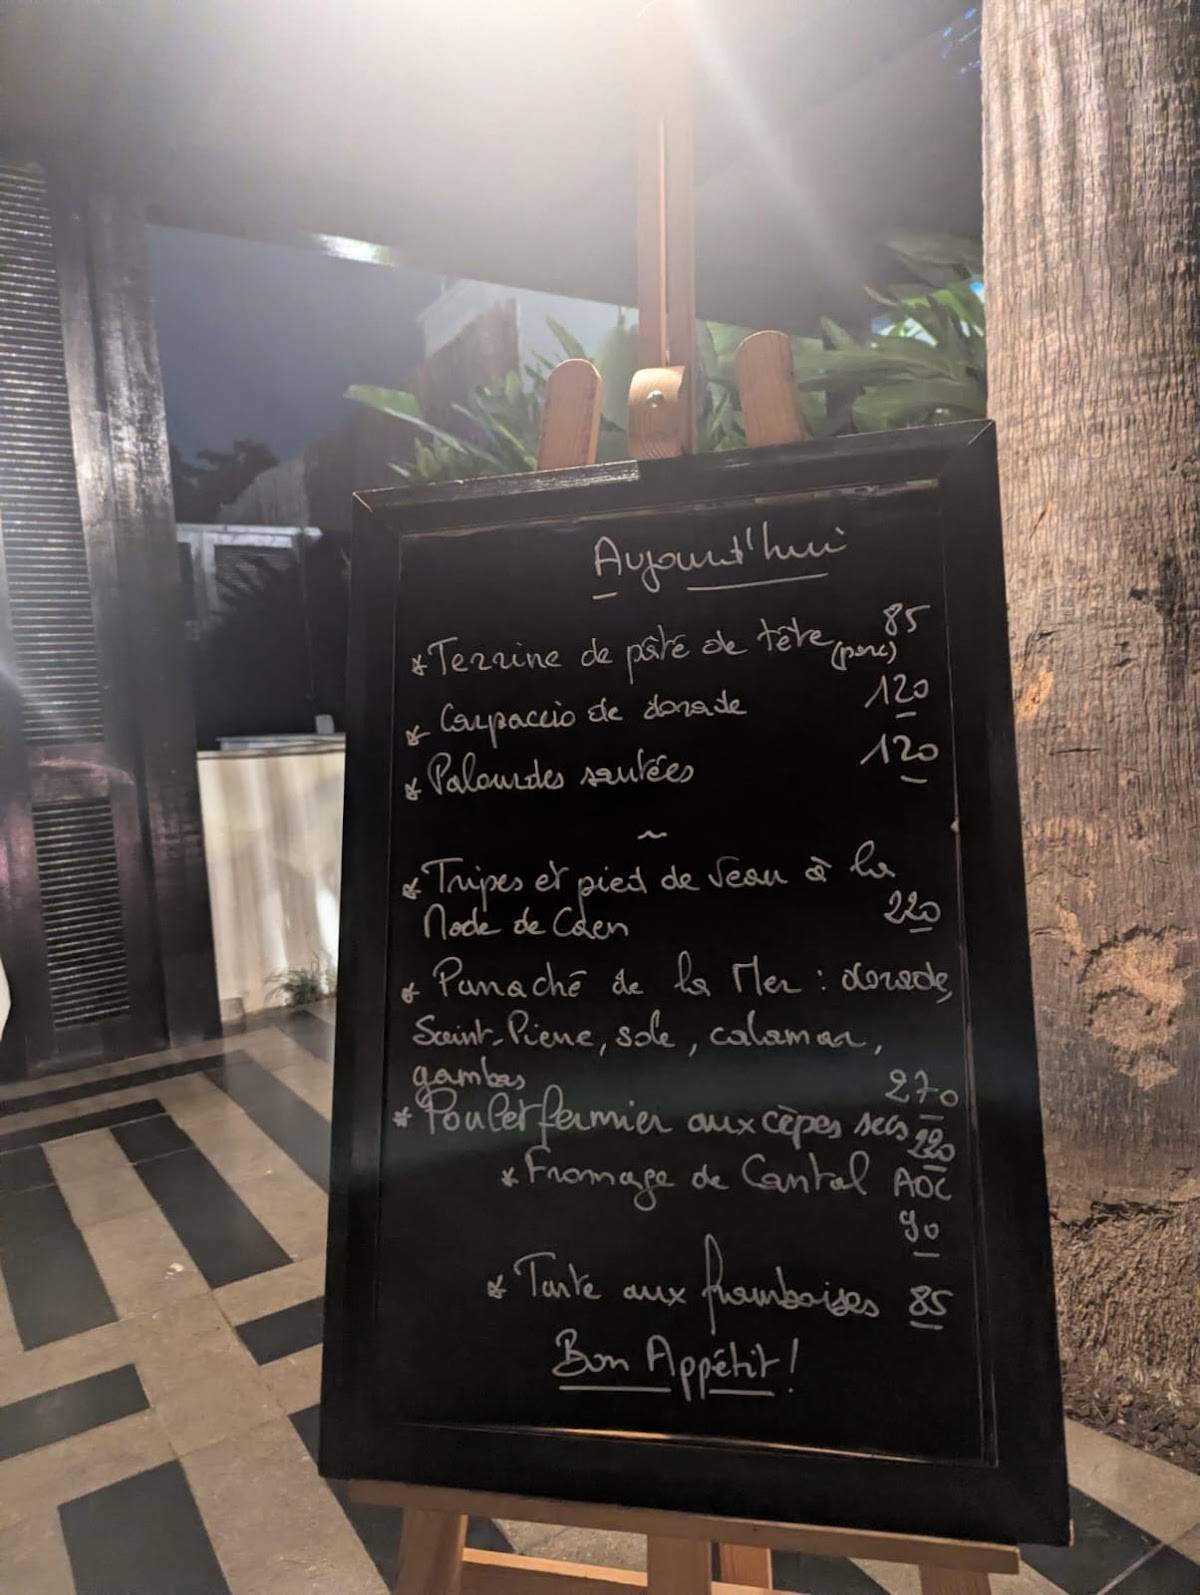 Aujourd'hui
* Terrine de pâté de tête (porc) 85
* Carpaccio de dorade 120
* Palourdes sautées 120
~
* Tripes et pied de Veau à la
Mode de Caen 220
* Panaché de la Mer : dorade,
Saint-Pierre, sole, calamar,
gambas 270
* Poulet fermier aux cèpes secs 220
* Fromage de Cantal AOC
90
* Tarte aux framboises 85
Bon Appétit !